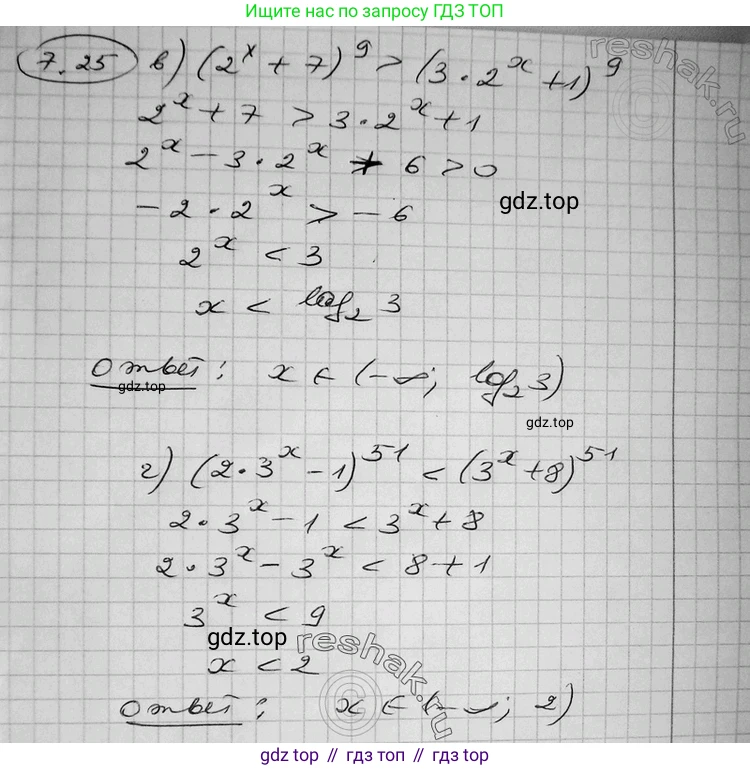 Ищите нас по запросу ГДЗ ТОП
7.25 в) (2^x + 7)^9 > (3 · 2^x + 1)^9
reshak.ru
2^x + 7 > 3 · 2^x + 1
2^x - 3 · 2^x + 6 > 0
gdz.top
- 2 · 2^x > - 6
2^x < 3
x < log₂ 3
Ответ: x ∈ (-∞; log₂ 3)
gdz.top
gdz.top
г) (2 · 3^x - 1)^51 < (3^x + 8)^51
2 · 3^x - 1 < 3^x + 8
2 · 3^x - 3^x < 8 + 1
3^x < 9
gdz.top
reshak.ru
x < 2
Ответ: x ∈ (-∞; 2)
gdz top // гдз топ // gdz.top